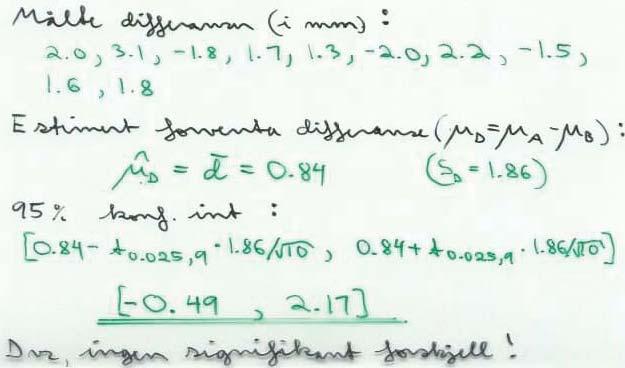 Målte differanser (i mm) :
2.0, 3.1, -1.8, 1.7, 1.3, -2.0, 2.2, -1.5,
1.6, 1.8
Estimert forventa differanse (μ_D = μ_A - μ_B) :
μ̂_D = d̄ = 0.84 (S_D = 1.86)
95 % konf. int :
[0.84 - t_0.025,9 · 1.86/√10 , 0.84 + t_0.025,9 · 1.86/√10]
[-0.49 , 2.17]
Dvs, ingen signifikant forskjell !